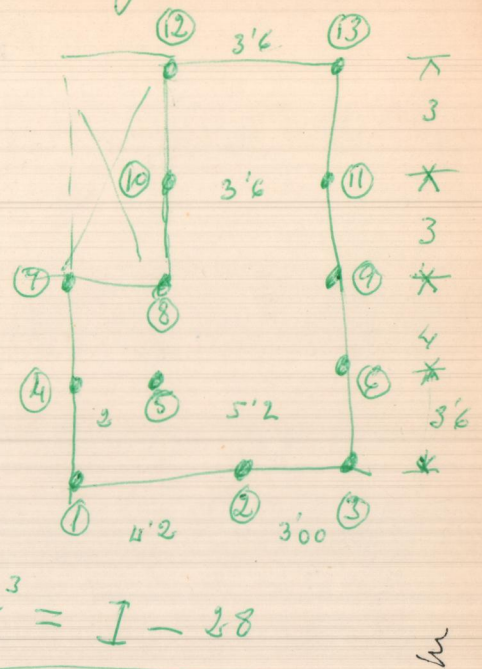 12 3'6 13
3
10 3'6 11
3
7 8 9
4
4 2 5 5'2 6 3'6
1 4'2 2 3'00 3
3 = I - 28